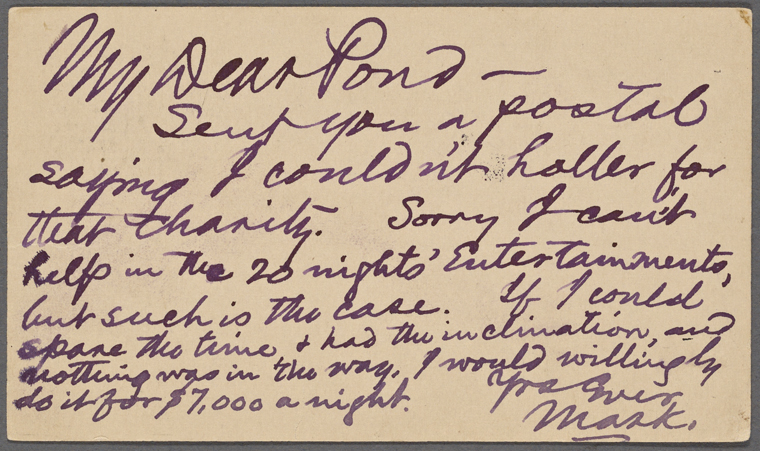 My Dear Pond —
Sent you a postal
saying I couldn't holler for
that charity. Sorry I can't
help in the 20 nights' Entertainments,
but such is the case. If I could
spare the time, & had the inclination, and
nothing was in the way, I would willingly
do it for $7,000 a night.
Yrs Ever
Mark.